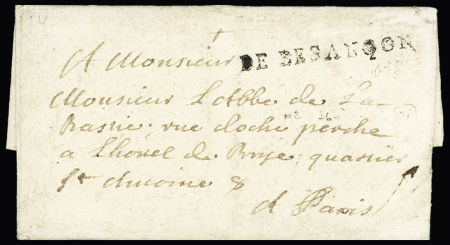 A Monsieur
DE BESANÇON
Monsieur Labbé de La
Bassie; rue cloche perche
a Lhotel de ; quartier
St Antoine &
A Paris